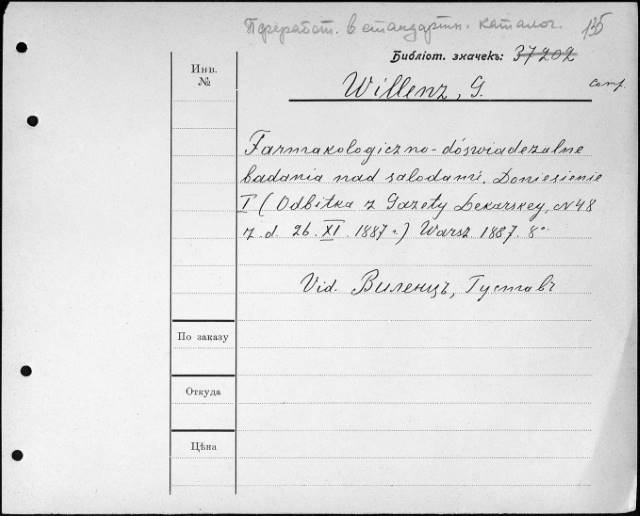 Переработ. в стандартн. каталог. 135
Библіот. значекъ: 37202
Инв.
№
Willenz, G.
Farmakologiczno-dóswiadezalne
badania nad salodami. Doniesienie
I (Odbitka z Gazety Lekarskey, № 48
z. d. 26. XI. 1887 r.) Warsz. 1887. 8°
Vid. Виленцъ, Густавъ
По заказу
Откуда
Цѣна